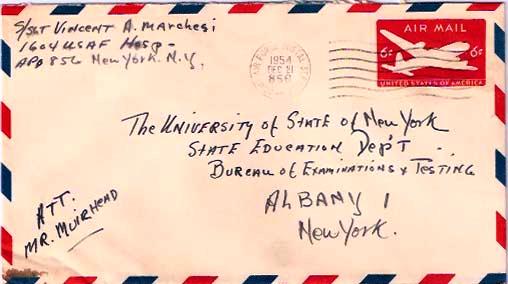 S/SGT VINCENT A. MARCHESI
1604 USAF Hosp -
APO 856 New York. N.Y.
AIR FORCE POSTAL SVC
1954
DEC 21
856
AIR MAIL
6¢ 6¢
UNITED STATES OF AMERICA
The University of State of New York
STATE EDUCATION DEP'T
BUREAU OF EXAMINATIONS & TESTING
ALBANY 1
New York.
ATT:
MR. MUIRHEAD